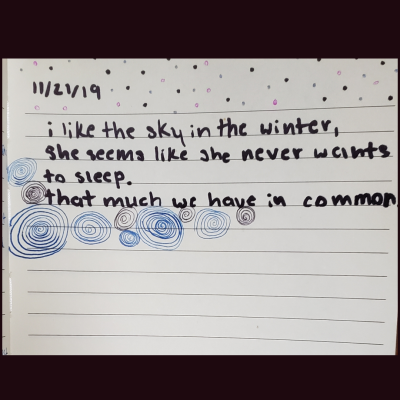 11/21/19
i like the sky in the winter,
she seems like she never wants
to sleep.
that much we have in common.